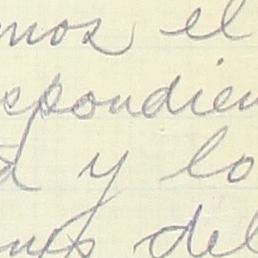 mos el
spondien
a y lo
nes del